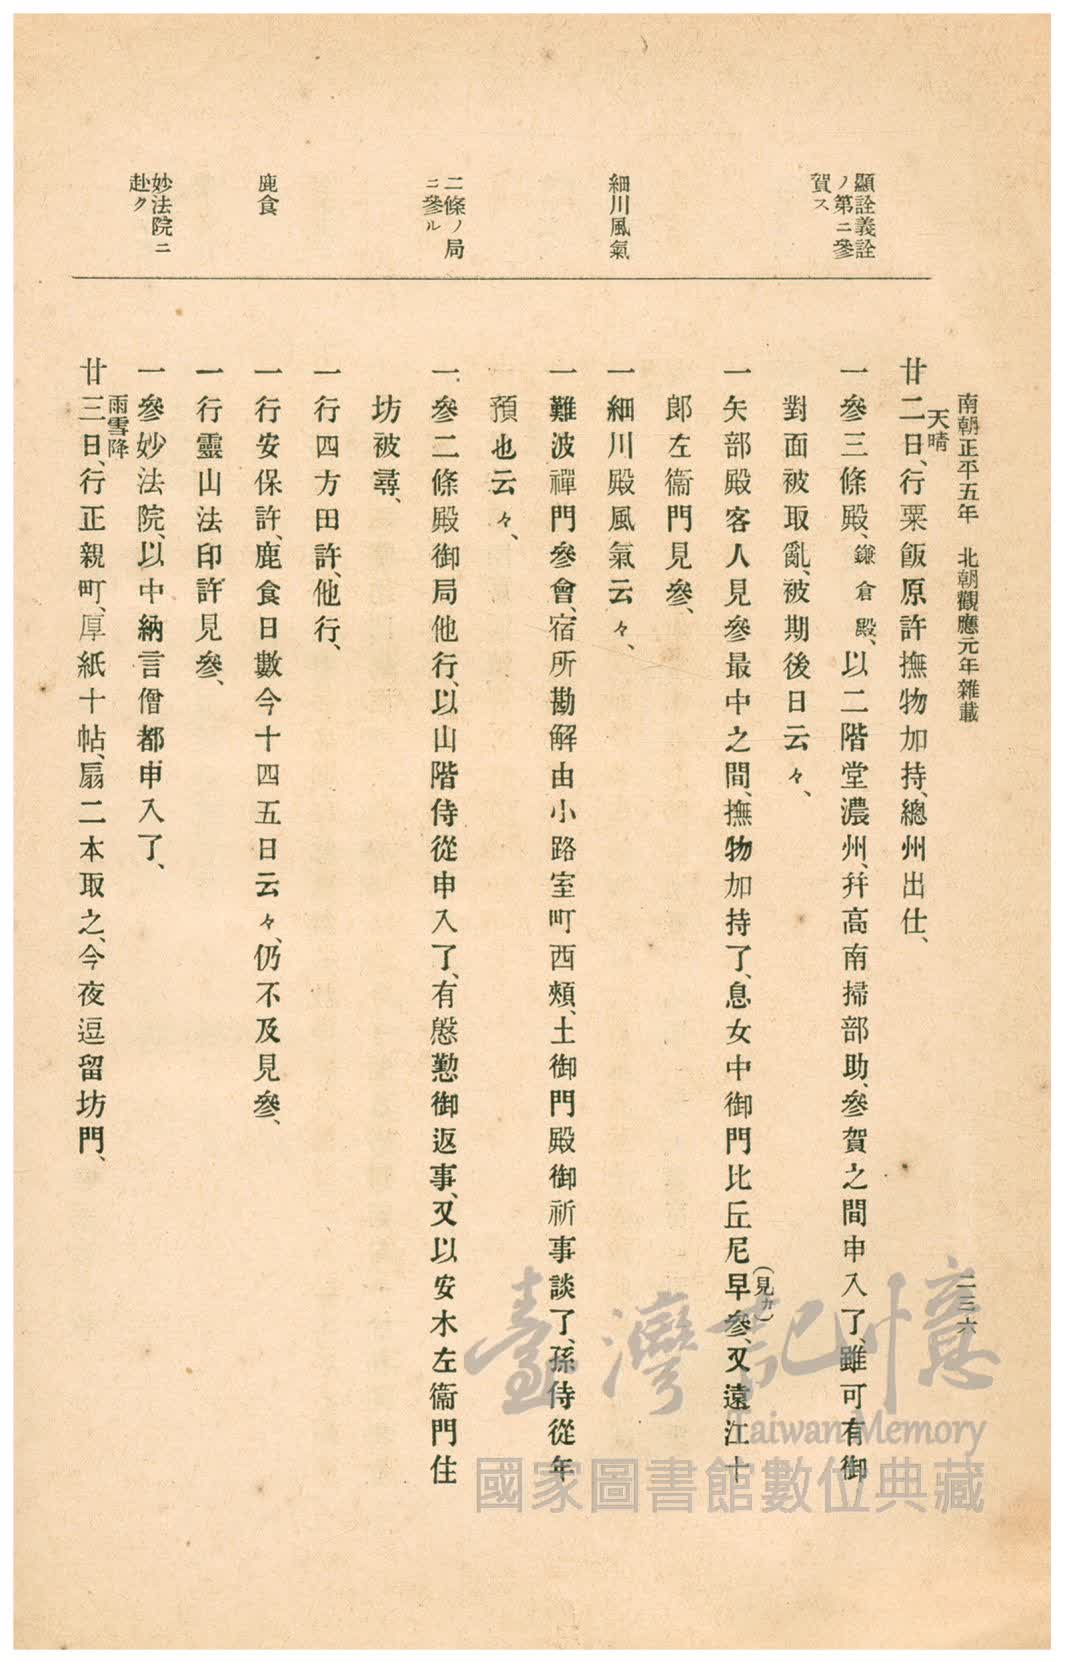 南朝正平五年　北朝觀應元年雜載
二三六
顯詮義詮
ノ第ニ參
賀ス
細川風氣
二條ノ局
ニ參ル
鹿食
妙法院ニ
赴ク
天晴
廿二日、行粟飯原許撫物加持、總州出仕、
一參三條殿、鎌倉殿、以二階堂濃州、幷高南掃部助、參賀之間申入了、雖可有御
對面被取亂、被期後日云々、
一矢部殿客人見參最中之間、撫物加持了、息女中御門比丘尼早參、又遠江十
(見カ)
郞左衞門見參、
一細川殿風氣云々、
一難波禪門參會、宿所勘解由小路室町西頰、土御門殿御祈事談了、孫侍從年
預也云々、
一參二條殿御局他行、以山階侍從申入了、有慇懃御返事、又以安木左衞門住
坊被尋、
一行四方田許、他行、
一行安保許、鹿食日數今十四五日云々、仍不及見參、
一行靈山法印許見參、
一參妙法院、以中納言僧都申入了、
雨雪降
廿三日、行正親町、厚紙十帖、扇二本取之、今夜逗留坊門、
臺灣記憶
Taiwan Memory
國家圖書館數位典藏